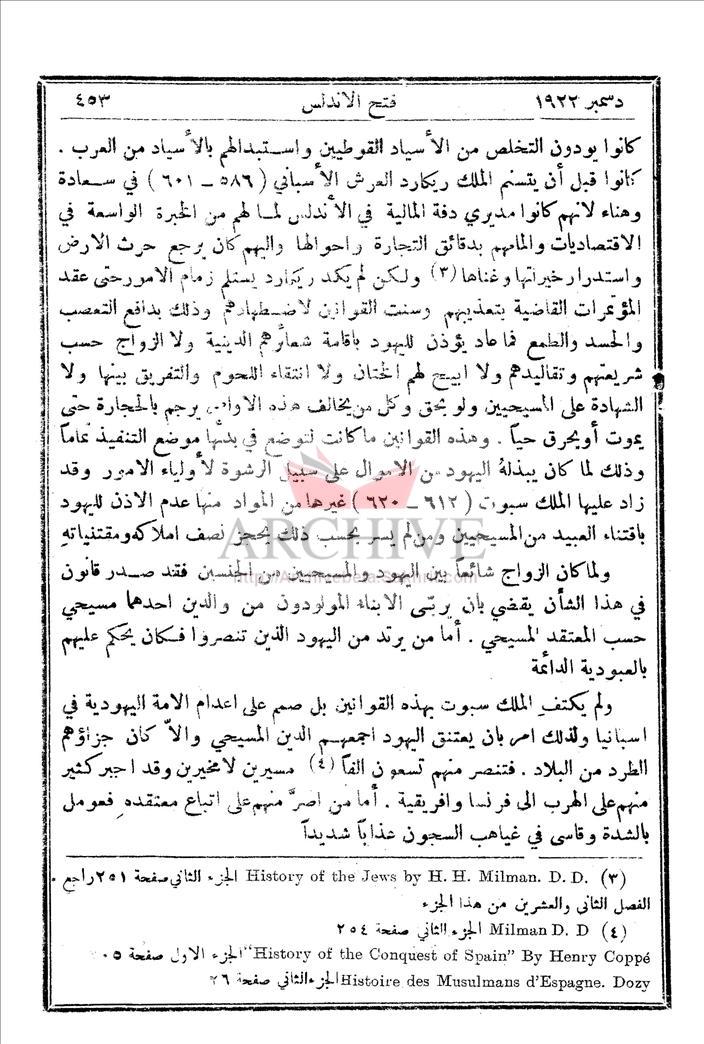 دسمبر ١٩٢٢ فتح الاندلس ٤٥٣
كانوا يودون التخلص من الأسياد القوطيين واستبدالهم بالأسياد من العرب .
كانوا قبل أن يتسنم الملك ريكارد العرش الأسباني ( ٥٨٦ – ٦٠١ ) في سعادة
وهناء لانهم كانوا مديري دفة المالية في الأندلس لما لهم من الخبرة الواسعة في
الاقتصاديات والمامهم بدقائق التجارة واحوالها واليهم كان يرجع حرث الارض
واستدرار خيراتها وغناها (٣) ولكن لم يكد ريكارد يستلم زمام الامور حتى عقد
المؤتمرات القاضية بتعذيبهم وسنت القوانين لاضطهادهم وذلك بدافع التعصب
والحسد والطمع فما عاد يؤذن لليهود باقامة شعائرهم الدينية ولا الزواج حسب
شريعتهم وتقاليدهم ولا ابيح لهم الختان ولا انتقاء اللحوم والتفريق بينها ولا
الشهادة على المسيحيين ولو بحق وكل من يخالف هذه الاوامر يرجم بالحجارة حتى
يموت أو يحرق حياً . وهذه القوانين ما كانت لتوضع في بدئها موضع التنفيذ تماماً
وذلك لما كان يبذلهُ اليهود من الاموال على سبيل الرشوة لأولياء الامور وقد
زاد عليها الملك سبوت ( ٦١٢ – ٦٢٠ ) غيرها من المواد منها عدم الاذن لليهود
باقتناء العبيد من المسيحيين ومن لم يسر بحسب ذلك يحجز لنصف املاكه ومقتنياتهِ
ARCHIVE
ولما كان الزواج شائعاً بين اليهود والمسيحيين من الجنسين فقد صدر قانون
في هذا الشأن يقضي بان يربّى الابناء المولودون من والدين احدهما مسيحي
حسب المعتقد المسيحي . أما من يرتد من اليهود الذين تنصروا فكان يحكم عليهم
بالعبودية الدائمة
ولم يكتفِ الملك سبوت بهذه القوانين بل صمم على اعدام الامة اليهودية في
اسبانيا ولذلك امر بان يعتنق اليهود اجمعهم الدين المسيحي والاّ كان جزاؤهم
الطرد من البلاد . فتنصر منهم تسعون الفاً (٤) مسيرين لا مخيرين وقد اجبر كثير
منهم على الهرب الى فرنسا وافريقية . أما من اصرَّ منهم على اتباع معتقده فعومل
بالشدة وقاسى في غياهب السجون عذاباً شديداً
(٣) History of the Jews by H. H. Milman. D. D. الجزء الثاني صفحة ٢٥١ راجع
الفصل الثاني والعشرين من هذا الجزء
(٤) Milman D. D الجزء الثاني صفحة ٢٥٤
"History of the Conquest of Spain" By Henry Coppé الجزء الاول صفحة
Histoire des Musulmans d'Espagne. Dozy الجزء الثاني صفحة ٢٦